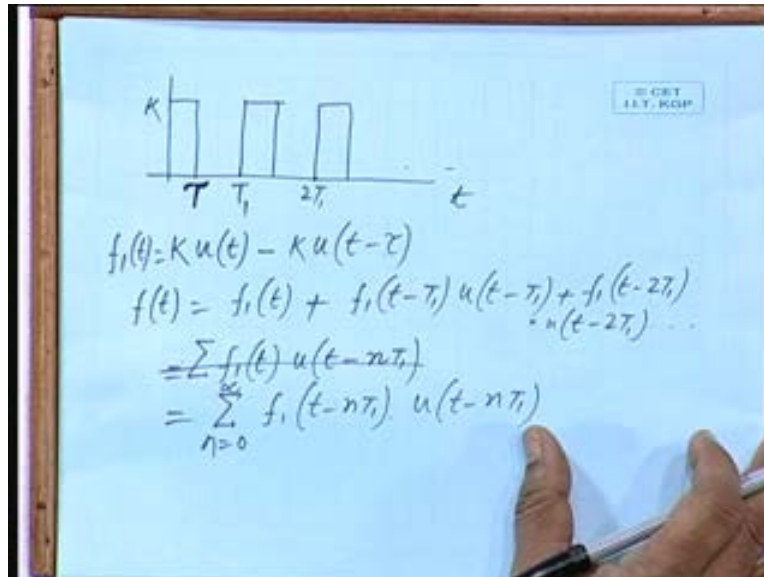 © CET
I.I.T. KGP
K
T T₁ 2T₁ t
f₁(t)= K u(t) - K u(t-τ)
f(t) = f₁(t) + f₁(t-T₁) u(t-T₁) + f₁(t-2T₁)
· u(t-2T₁) ...
= Σ f₁(t) u(t-nT₁)
= Σ f₁(t-nT₁). u(t-nT₁)
∞
n=0